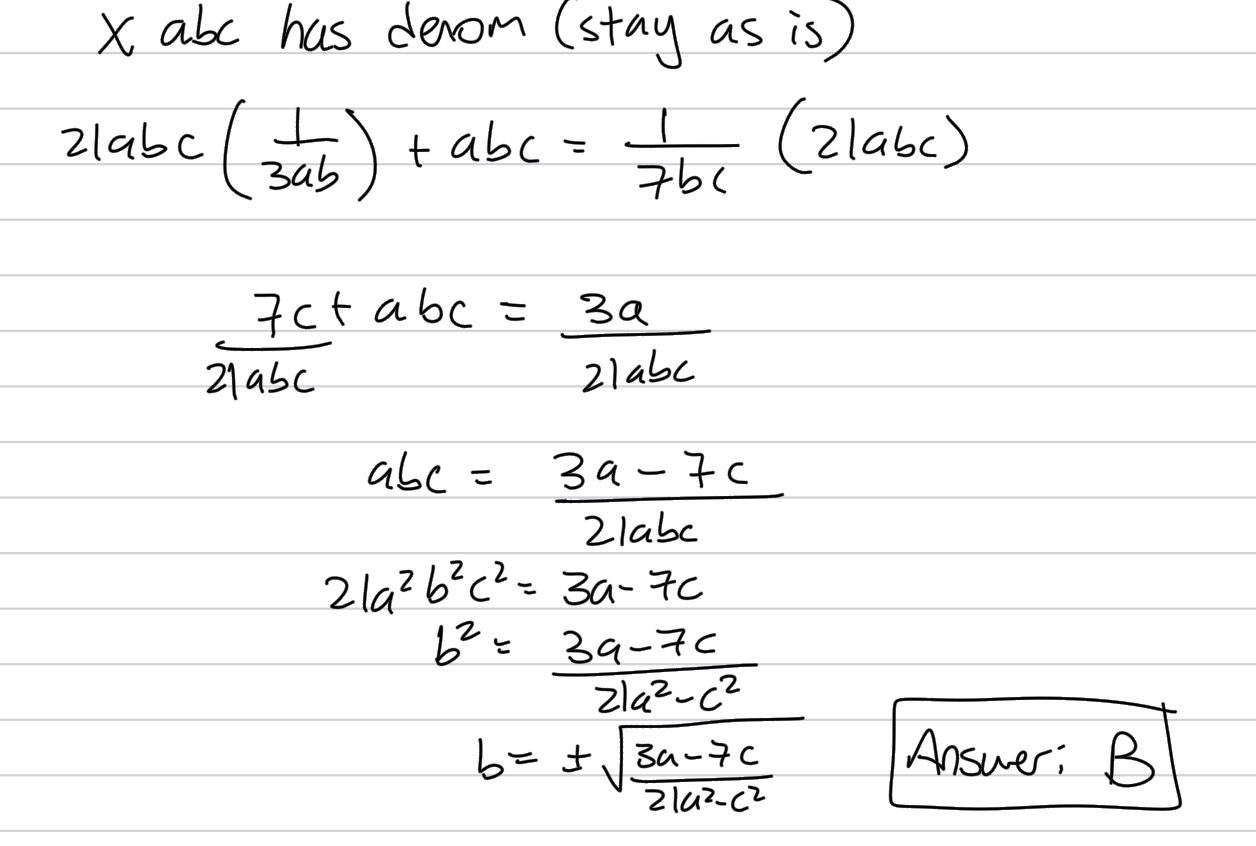 x abc has denom (stay as is)
21abc (1/3ab) + abc = 1/7bc (21abc)
7c/21abc + abc = 3a/21abc
abc = 3a - 7c/21abc
21a²b²c² = 3a - 7c
b² = 3a - 7c/21a² - c²
b = ± √3a - 7c/21a² - c²
Answer: B